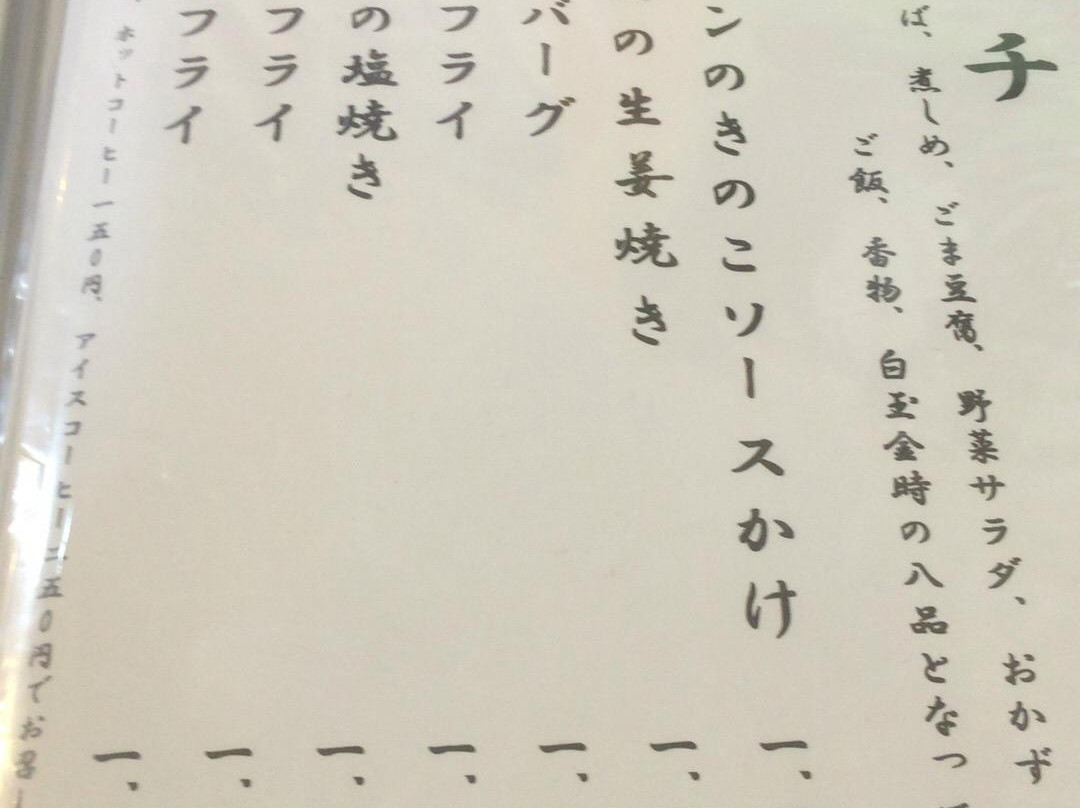 チ
ば、煮しめ、ごま豆腐、野菜サラダ、おかず
ご飯、香物、白玉金時の八品となっ
ンのきのこソースかけ 一、
の生姜焼き 一、
バーグ 一、
フライ 一、
の塩焼き 一、
フライ 一、
フライ 一、
ホットコーヒー一五０円、アイスコーヒー二五０円でお召し